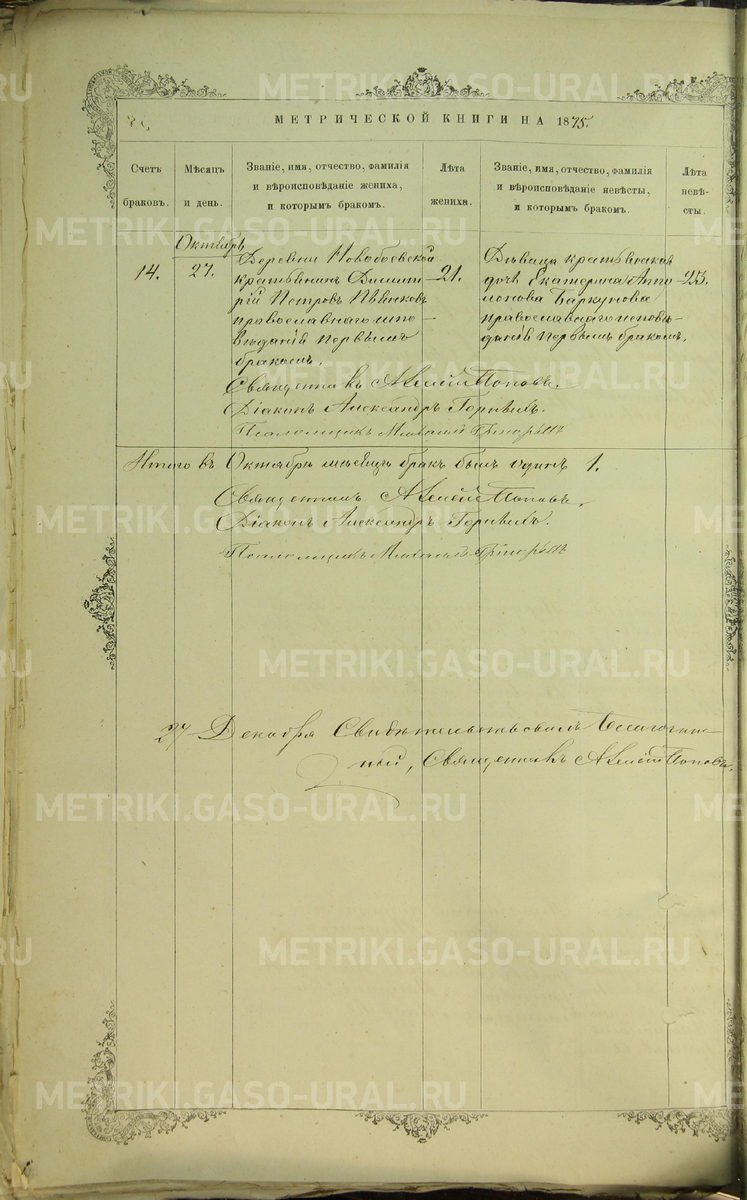 МЕТРИЧЕСКОЙ КНИГИ НА 1875.
Счетъ браковъ.
Мѣсяцъ и день.
Званіе, имя, отчество, фамилія
и вѣроисповѣданіе жениха,
и которымъ бракомъ.
Лѣта
жениха.
Званіе, имя, отчество, фамилія
и вѣроисповѣданіе невѣсты,
и которымъ бракомъ.
Лѣта
невѣ-
сты.
Октябрь
14.
27.
Деревни Новобоевской
крестьянинъ Димит
рій Петровъ
православнаго испо
вѣданія первымъ
бракомъ.
21.
Дѣвица крестьянская
дочь Екатерина Арте
монова Баркунова
православнаго исповѣ
данія первымъ бракомъ.
23.
Священникъ Алексій Поповъ.
Діаконъ Александръ
Псаломщикъ
Итого въ Октябрѣ мѣсяцѣ бракъ былъ одинъ 1.
Священникъ Алексій Поповъ.
Діаконъ Александръ
Псаломщикъ
27 Декабря Свидѣтельствовалъ Благочин
ный, Священникъ Алексій Поповъ.
METRIKI.GASO-URAL.RU